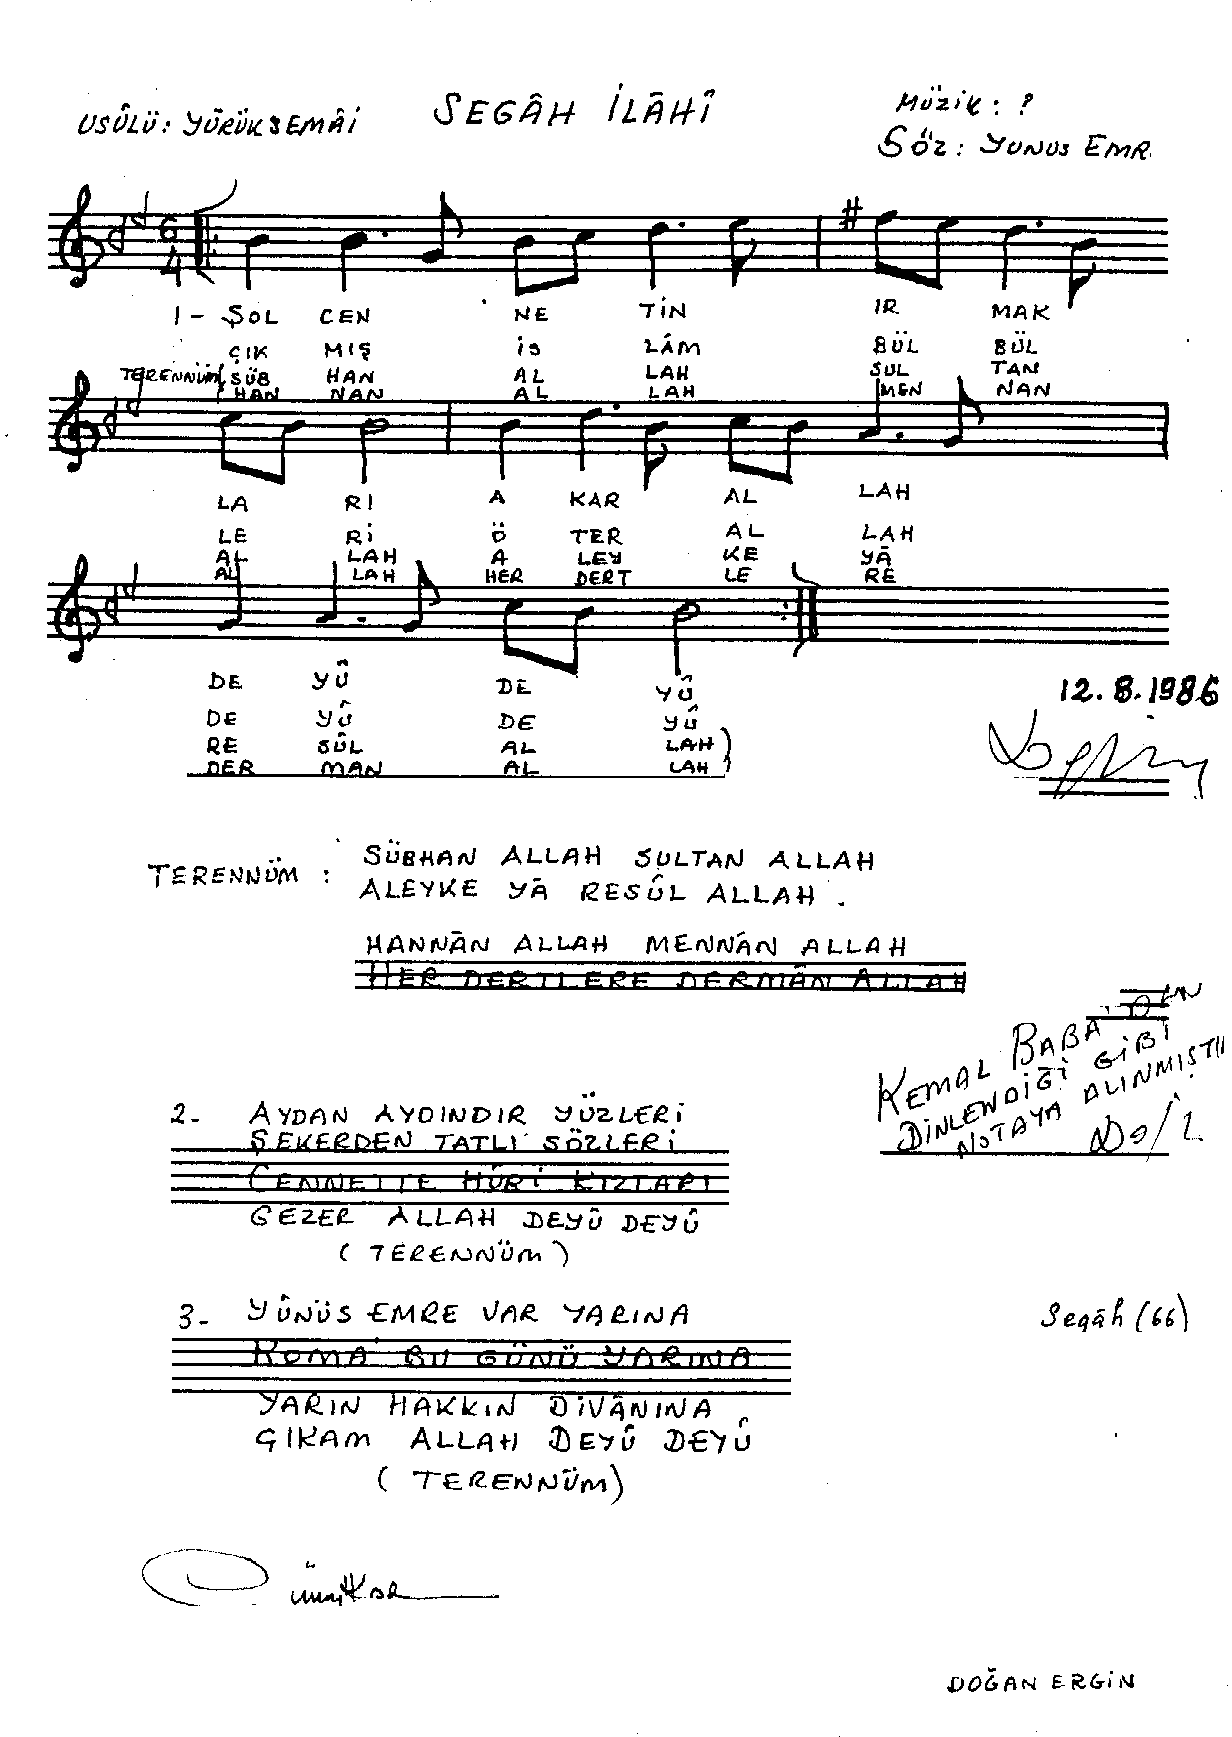 USÛLÜ: YÜRÜKSEMÂİ SEGÂH İLÂHÎ MÜZİK: ?
SÖZ: YUNUS EMR
6
4
1- ŞOL CEN NE TİN IR MAK
ÇIK MIŞ İS LÂM BÜL BÜL
TERENNÜM (SÜB HAN AL LAH SUL TAN
HAN NAN AL LAH MEN NAN
LA RI A KAR AL LAH
LE Rİ Ö TER AL LAH
AL LAH A LEY KE YÂ
AL LAH HER DERT LE RE
DE YÛ DE YÛ
DE YÛ DE YÛ
RE SÛL AL LAH
DER MAN AL LAH)
12.8.1986
TERENNÜM: SÜBHAN ALLAH SULTAN ALLAH
ALEYKE YÂ RESÛL ALLAH.
HANNÂN ALLAH MENNÂN ALLAH
HER DERTLERE DERMÂN ALLAH
KEMAL BABA'DAN
DİNLENDİĞİ GİBİ
NOTAYA ALINMIŞTI
2- AYDAN AYDINDIR YÜZLERİ
ŞEKERDEN TATLI SÖZLERİ
CENNETTE HÛRİ KIZLARI
GEZER ALLAH DEYÛ DEYÛ
(TERENNÜM)
3- YÛNÜS EMRE VAR YARINA
KOMA BU GÜNÜ YARINA
YARIN HAKKIN DİVÂNINA
ÇIKAM ALLAH DEYÛ DEYÛ
(TERENNÜM)
Segâh (66)
DOĞAN ERGİN